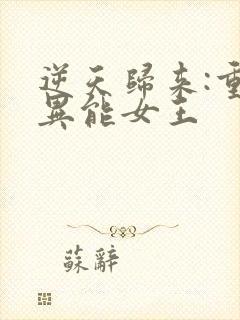 逆天歸来:重
異能女王
蘇辭